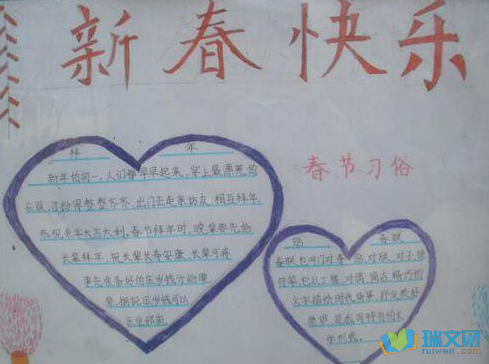 新春快乐
拜 年
新年伯初一,人们都早早起来,穿上最漂亮的
衣服,打扮得整整齐齐,出门去走亲访友,相互拜年,
恭祝来年大吉大利,春节拜年时,晚辈要先给
长辈拜年,祝长辈长寿安康,长辈可将
事先准备好的压岁钱分给晚
辈,据说压岁钱可以
压住邪祟
春节习俗
贴 春联
春联也叫门对、春贴、对联、对子、桃
符等,它以工整、对偶、简洁、精巧的
文字描绘时代背景,抒发美好
愿望,是我国特有的文
学形式。
瑞文网
ruiwen.com